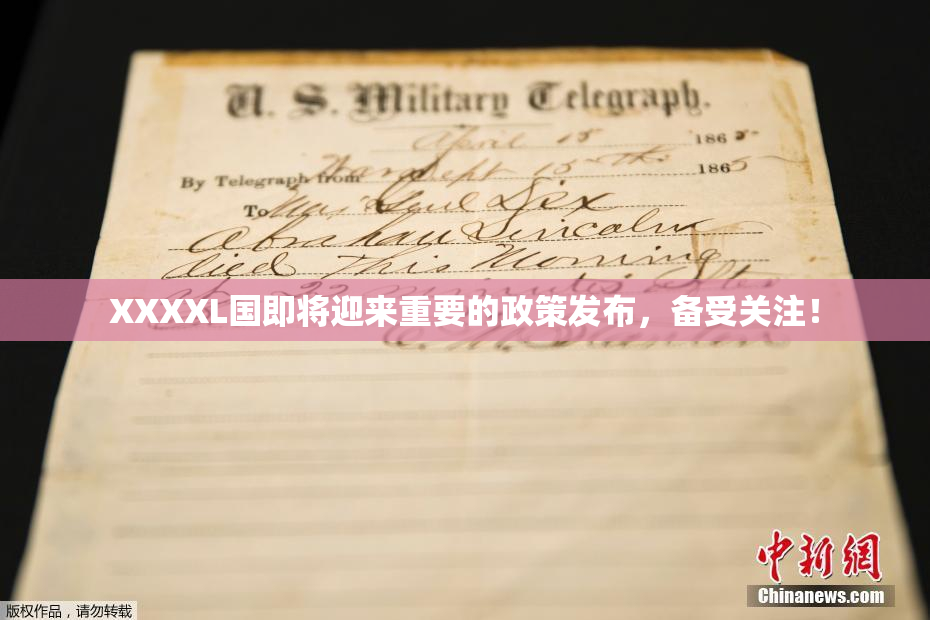 U. S. Military Telegraph.
April 15 1865
By Telegraph from War Dept 15th 1865
To Maj Genl Dix
Abraham Lincoln
died This Morning
at 22 minutes after
XXXXL国即将迎来重要的政策发布，备受关注！
E. M. Stanton
中新网
Chinanews.com
版权作品，请勿转载